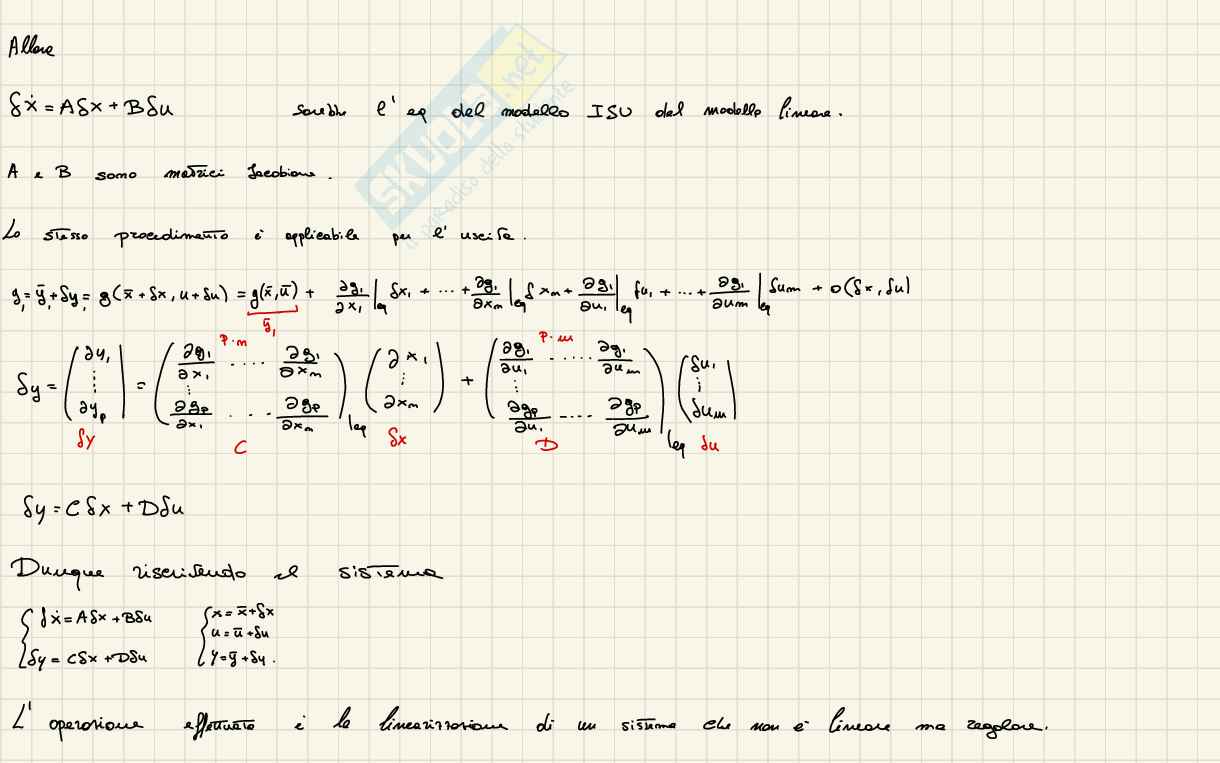 Allora
δẋ = Aδx + Bδu sarebbe l'eq del modello ISU del modello lineare.
A e B sono matrici Jacobiane.
Lo stesso procedimento è applicabile per l'uscita.
y₁ = ȳ₁ + δy₁ = g(x̄ + δx, u + δu) = g(x̄, ū) + ∂g₁/∂x₁|eq δx₁ + ... + ∂g₁/∂xₙ|eq δxₙ + ∂g₁/∂u₁|eq δu₁ + ... + ∂g₁/∂uₘ|eq δuₘ + o(δx, δu)
ȳ₁
p·n p·m
δy = (∂y₁ ⋮ ∂yₚ) = (∂g₁/∂x₁ ... ∂g₁/∂xₙ ⋮ ∂gₚ/∂x₁ ... ∂gₚ/∂xₙ)|eq (∂x₁ ⋮ ∂xₙ) + (∂g₁/∂u₁ ... ∂g₁/∂uₘ ⋮ ∂gₚ/∂u₁ ... ∂gₚ/∂uₘ)|eq (δu₁ ⋮ δuₘ)
δy C δx D δu
δy = Cδx + Dδu
Dunque riscrivendo il sistema
{ δẋ = Aδx + Bδu { x = x̄ + δx
u = ū + δu
δy = Cδx + Dδu y = ȳ + δy.
L'operazione effettuata è la linearizzazione di un sistema che non è lineare ma regolare.
SKUOLA.net
il paradiso dello studente